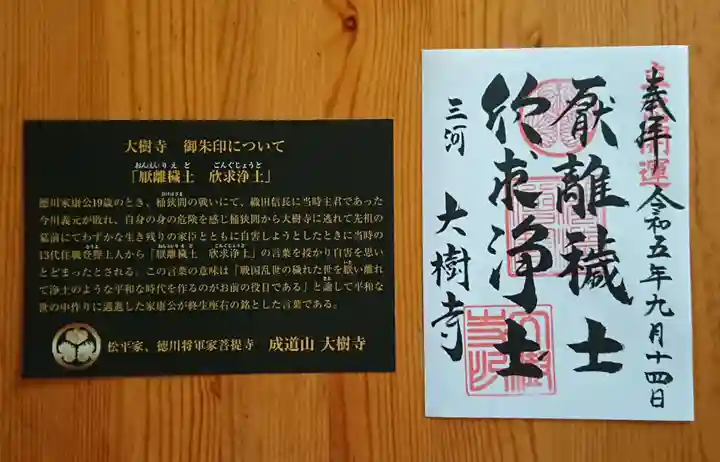 大樹寺 御朱印について
「厭離穢土 欣求浄土」
おんえんりえど ごんぐじょうど
徳川家康公19歳のとき、桶狭間の戦いにて、織田信長に当時主君であった
今川義元が敗れ、自身の身の危険を感じ桶狭間から大樹寺に逃れて先祖の
墓前にてわずかな生き残りの家臣とともに自害しようとしたときに当時の
13代住職登誉上人から「厭離穢土 欣求浄土」の言葉を授かり自害を思い
とどまったとされる。この言葉の意味は「戦国乱世の穢れた世を厭い離れ
て浄土のような平和な時代を作るのがお前の役目である」と諭して平和な
世の中作りに邁進した家康公が終生座右の銘とした言葉である。
松平家、徳川将軍家菩提寺 成道山 大樹寺
奉拝 令和五年九月十四日
厭離穢土
欣求浄土
三河 大樹寺